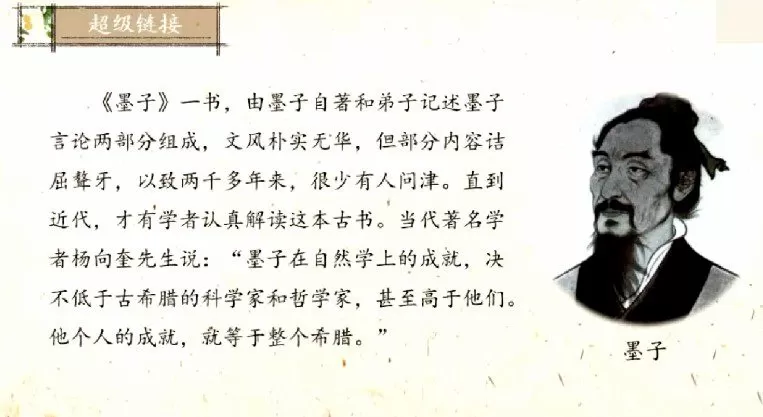 超级链接
《墨子》一书，由墨子自著和弟子记述墨子
言论两部分组成，文风朴实无华，但部分内容诘
屈聱牙，以致两千多年来，很少有人问津。直到
近代，才有学者认真解读这本古书。当代著名学
者杨向奎先生说：“墨子在自然学上的成就，决
不低于古希腊的科学家和哲学家，甚至高于他们。
他个人的成就，就等于整个希腊。”
墨子